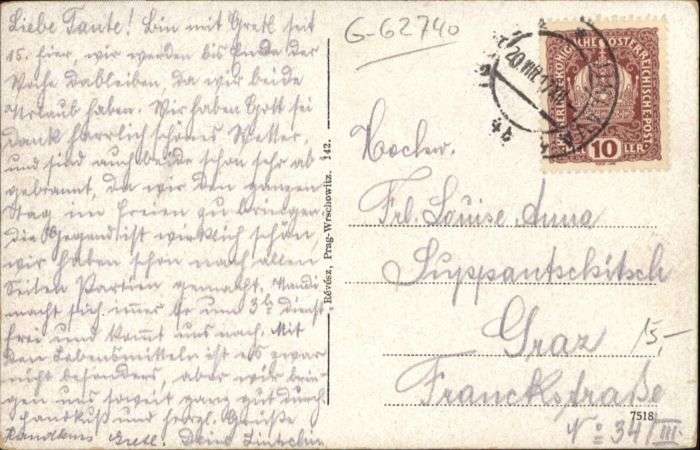 Liebe Tante! Bin mit Gretl seit
15. hier, wir werden bis Ende der
Woche dableiben, da wir beide
Urlaub haben. Wir haben Gott sei
dank herrlich schönes Wetter,
und sind auch beide schon sehr ab
gebrannt, da wir den ganzen
Tag im freien zu bringen.
die Gegend ist wirklich schön,
wir haben schon nach allen
Seiten Partien gemacht.
macht sich immer um 3h dienst
frei und kommt uns nach. Mit
den Lebensmitteln ist es zwar
nicht besonders, aber wir brin-
gen uns soweit ganz gut durch.
Handkuß und herzl. Grüße
Handkuss Gretl. Deine
G-62740
Révész, Prag-Wrschowitz. 142.
KAISERLICHE KÖNIGLICHE ÖSTERREICHISCHE POST
10 HELLER
Hochw.
Frl. Louise Anna
Suppantschitsch
Graz
15,-
Franckstraße
7518
No 34/III